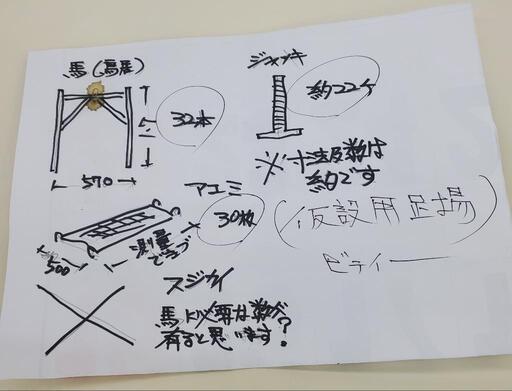 馬(鳥居)
32本
570
ジャッキ
約22ケ
※寸法及数は
約です
アユミ
30枚
500
測量
できず
(仮設用足場)
ビティー
スジカイ
馬ト必要な数が
有ると思います?